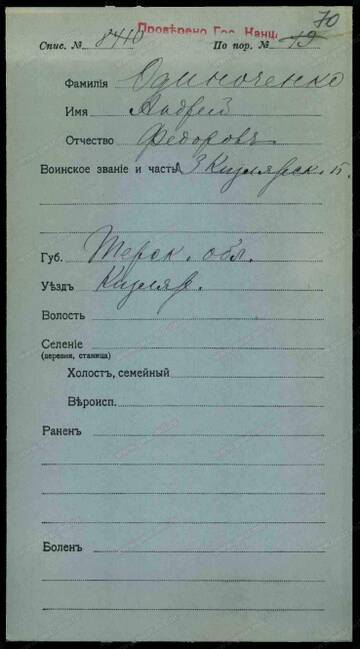 70
Провѣрено Гос. Канц.
Спис. № 8410 По пор. № 19
Фамилія Одиноченко
Имя Андрей
Отчество Федоровъ
Воинское званіе и часть 3 Кизлярск. п.
Губ. Терск. обл.
Уѣздъ Кизляр.
Волость
Селеніе
(деревня, станица)
Холостъ, семейный
Вѣроисп.
Раненъ
Боленъ